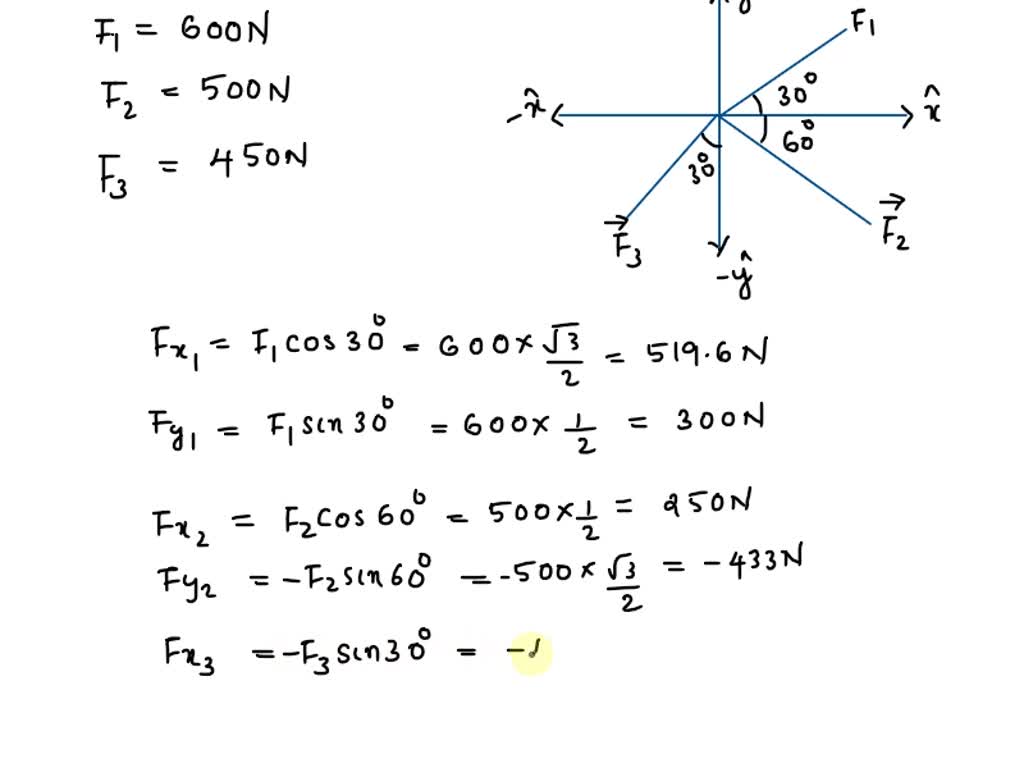 F₁ = 600N
F₂ = 500N
F₃ = 450N
F₁
30°
-x̂
x̂
60°
30°
F⃗₂
F⃗₃
-ŷ
Fx₁ = F₁cos30° = 600×√3/2 = 519.6N
Fy₁ = F₁sin30° = 600×1/2 = 300N
Fx₂ = F₂cos60° = 500×1/2 = 250N
Fy₂ = -F₂sin60° = -500×√3/2 = -433N
Fx₃ = -F₃sin30° = -